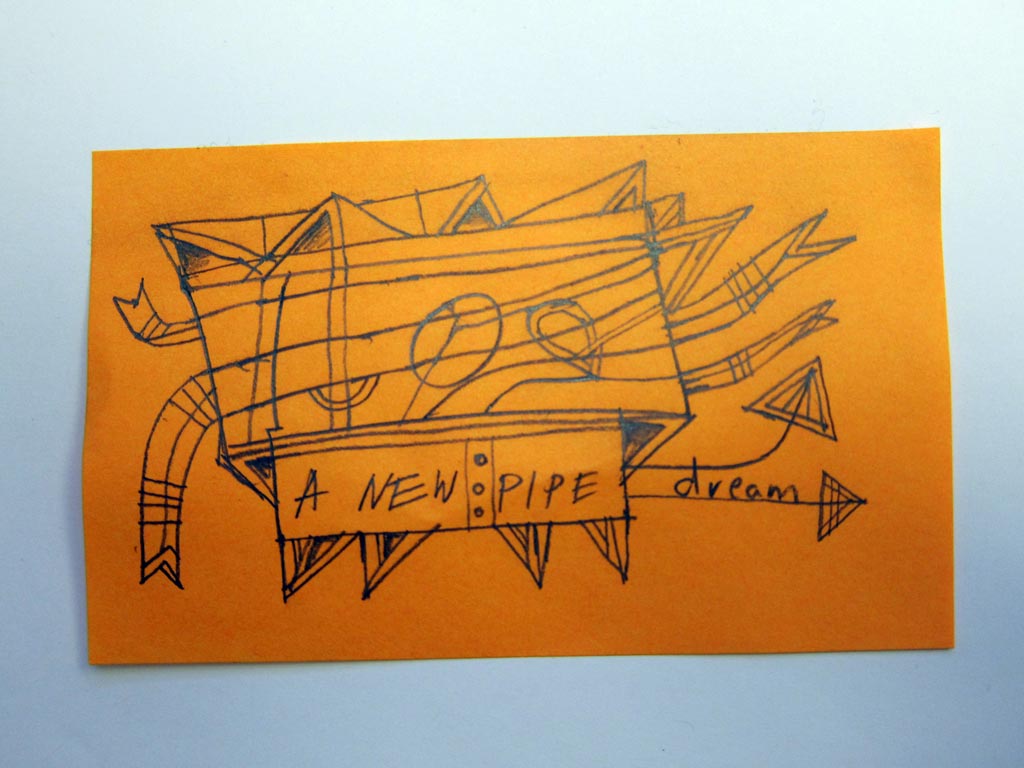 A NEW PIPE dream